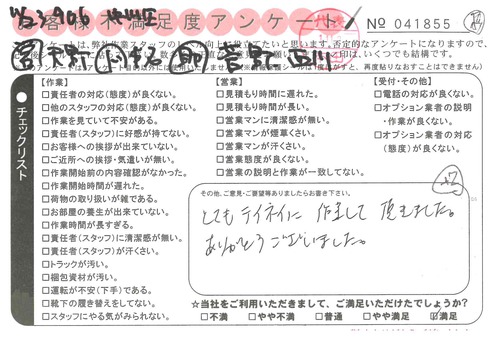 お客様大満足度アンケート
№ 041855
チェックリスト
【作業】
□責任者の対応(態度)が良くない。
□他のスタッフの対応(態度)が良くない。
□作業を見ていて不安がある。
□責任者(スタッフ)に好感が持てない。
□お客様への挨拶が出来ていない。
□ご近所への挨拶・気遣いが無い。
□作業開始前の内容確認がなかった。
□作業開始時間が遅れた。
□荷物の取り扱いが雑である。
□お部屋の養生が出来ていない。
□作業時間が長すぎる。
□責任者(スタッフ)に清潔感が無い。
□責任者(スタッフ)が汗くさい。
□トラックが汚い。
□梱包資材が汚い。
□運転が不安(下手)である。
□靴下の履き替えをしてない。
□スタッフにやる気がみられない。
【営業】
□見積もり時間に遅れた。
□見積もり時間が長い。
□営業マンに清潔感が無い。
□営業マンが煙草くさい。
□営業マンが汗くさい。
□営業態度が良くない。
□営業の説明と作業が一致してない。
【受付・その他】
□電話の対応が良くない。
□オプション業者の説明
・作業が良くない。
□オプション業者の対応
(態度)が良くない。
その他、ご意見・ご要望等ありましたらお書き下さい。
とてもテイネイに作業して頂きました。
ありがとうございました。
☆当社をご利用いただきまして、ご満足いただけたでしょうか?
□不満 □やや不満 □普通 □やや満足 ☑満足